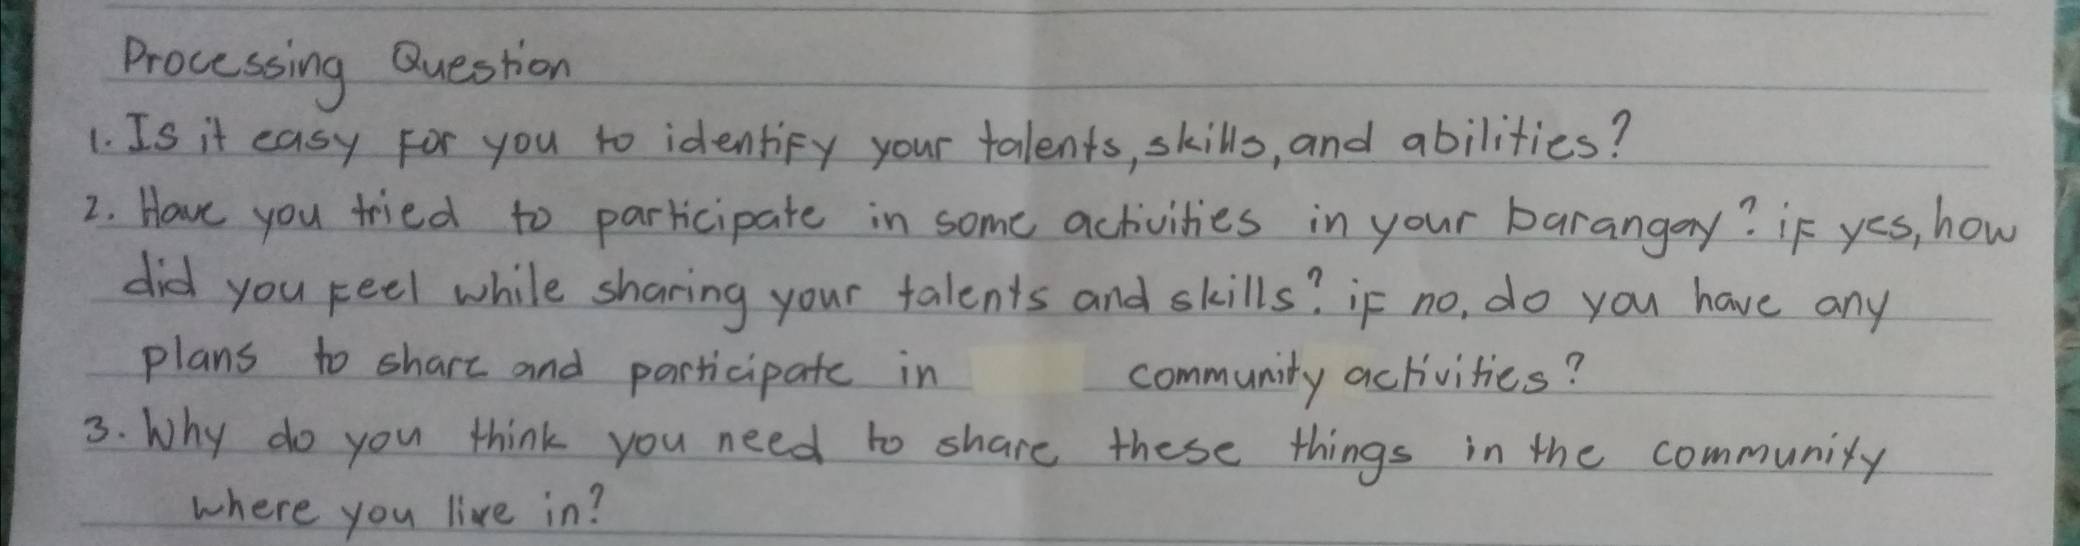 Processing Question
1. Is it easy for you to identify your talents, skills, and abilities?
2. Have you tried to participate in some activities in your barangay? if yes, how
did you feel while sharing your talents and skills? if no, do you have any
plans to share and participate in community activities?
3. Why do you think you need to share these things in the community
where you live in?